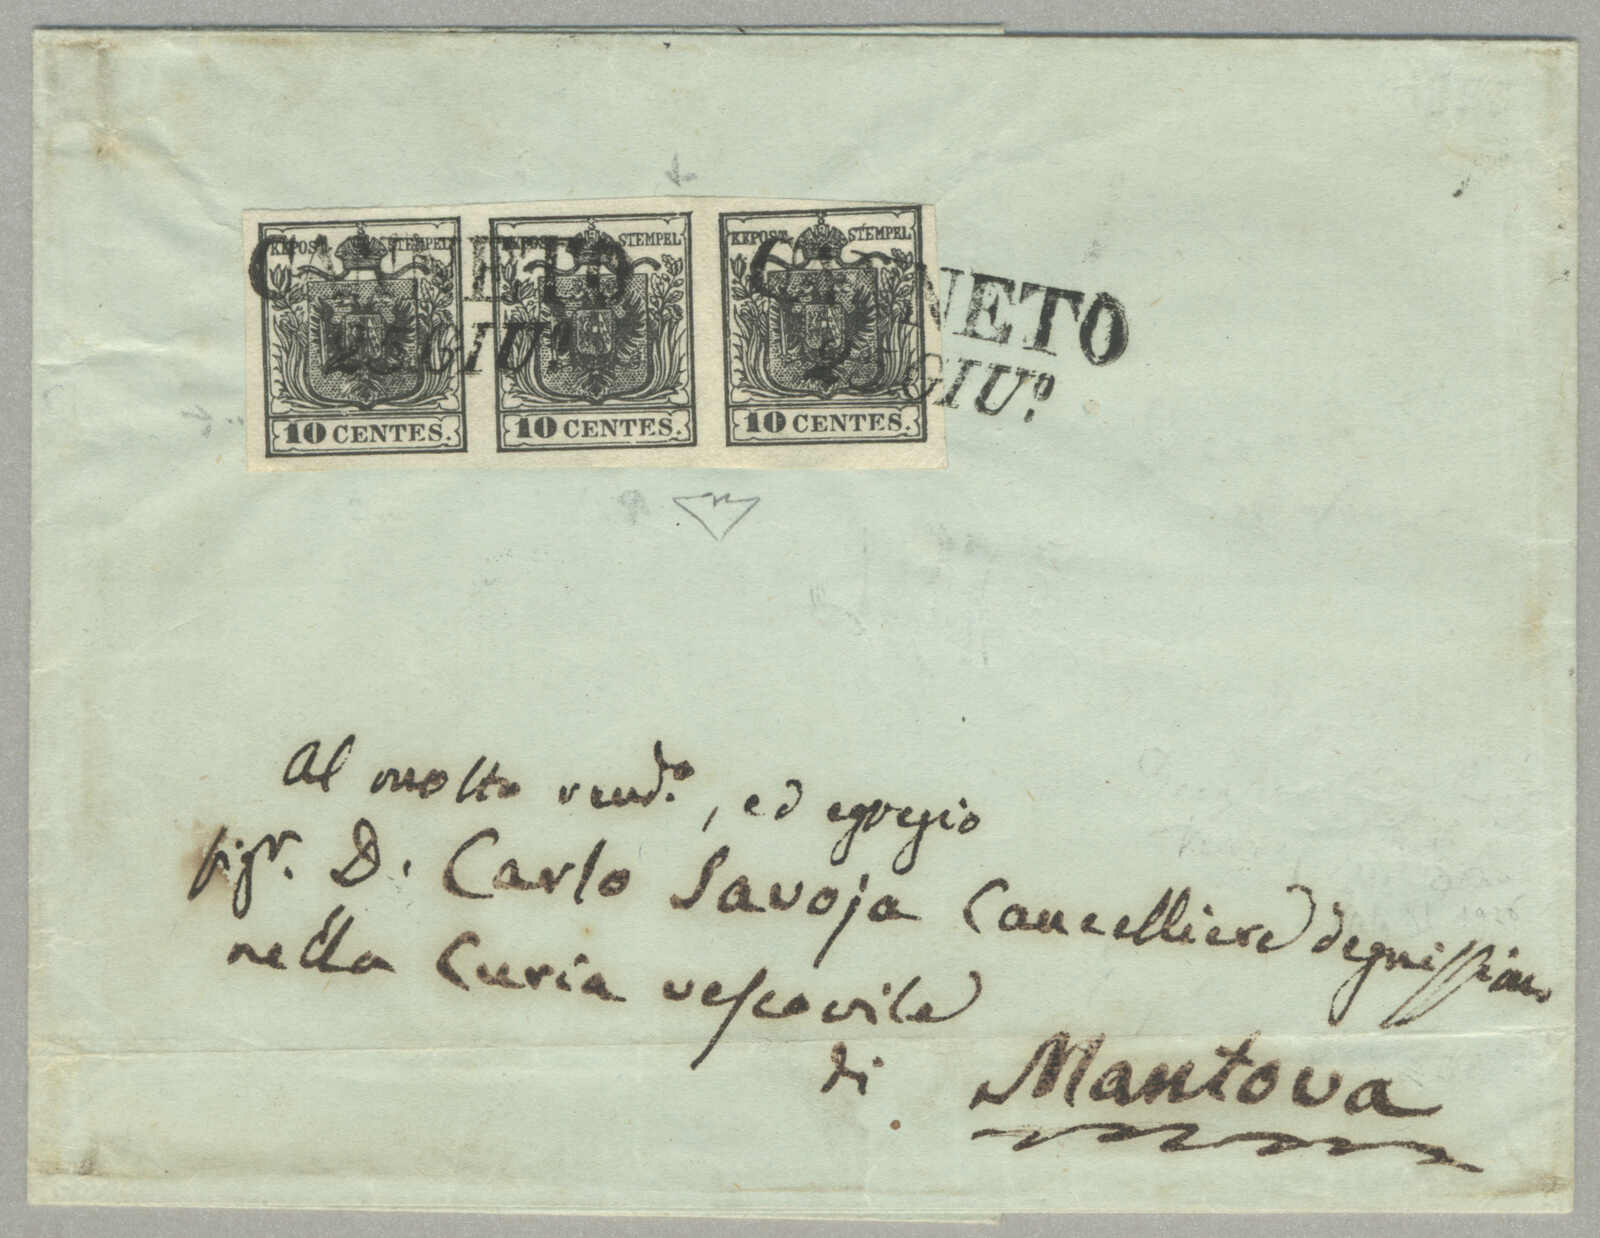 KKPOST- STEMPEL KKPOST- STEMPEL KKPOST- STEMPEL
10 CENTES. 10 CENTES. 10 CENTES.
CANNETO CANNETO
25 GIU.º 25 GIU.º
Al molto rend.º, ed egregio
sigr. D. Carlo Savoja Cancelliere degnissimo
nella Curia vescovile
di Mantova